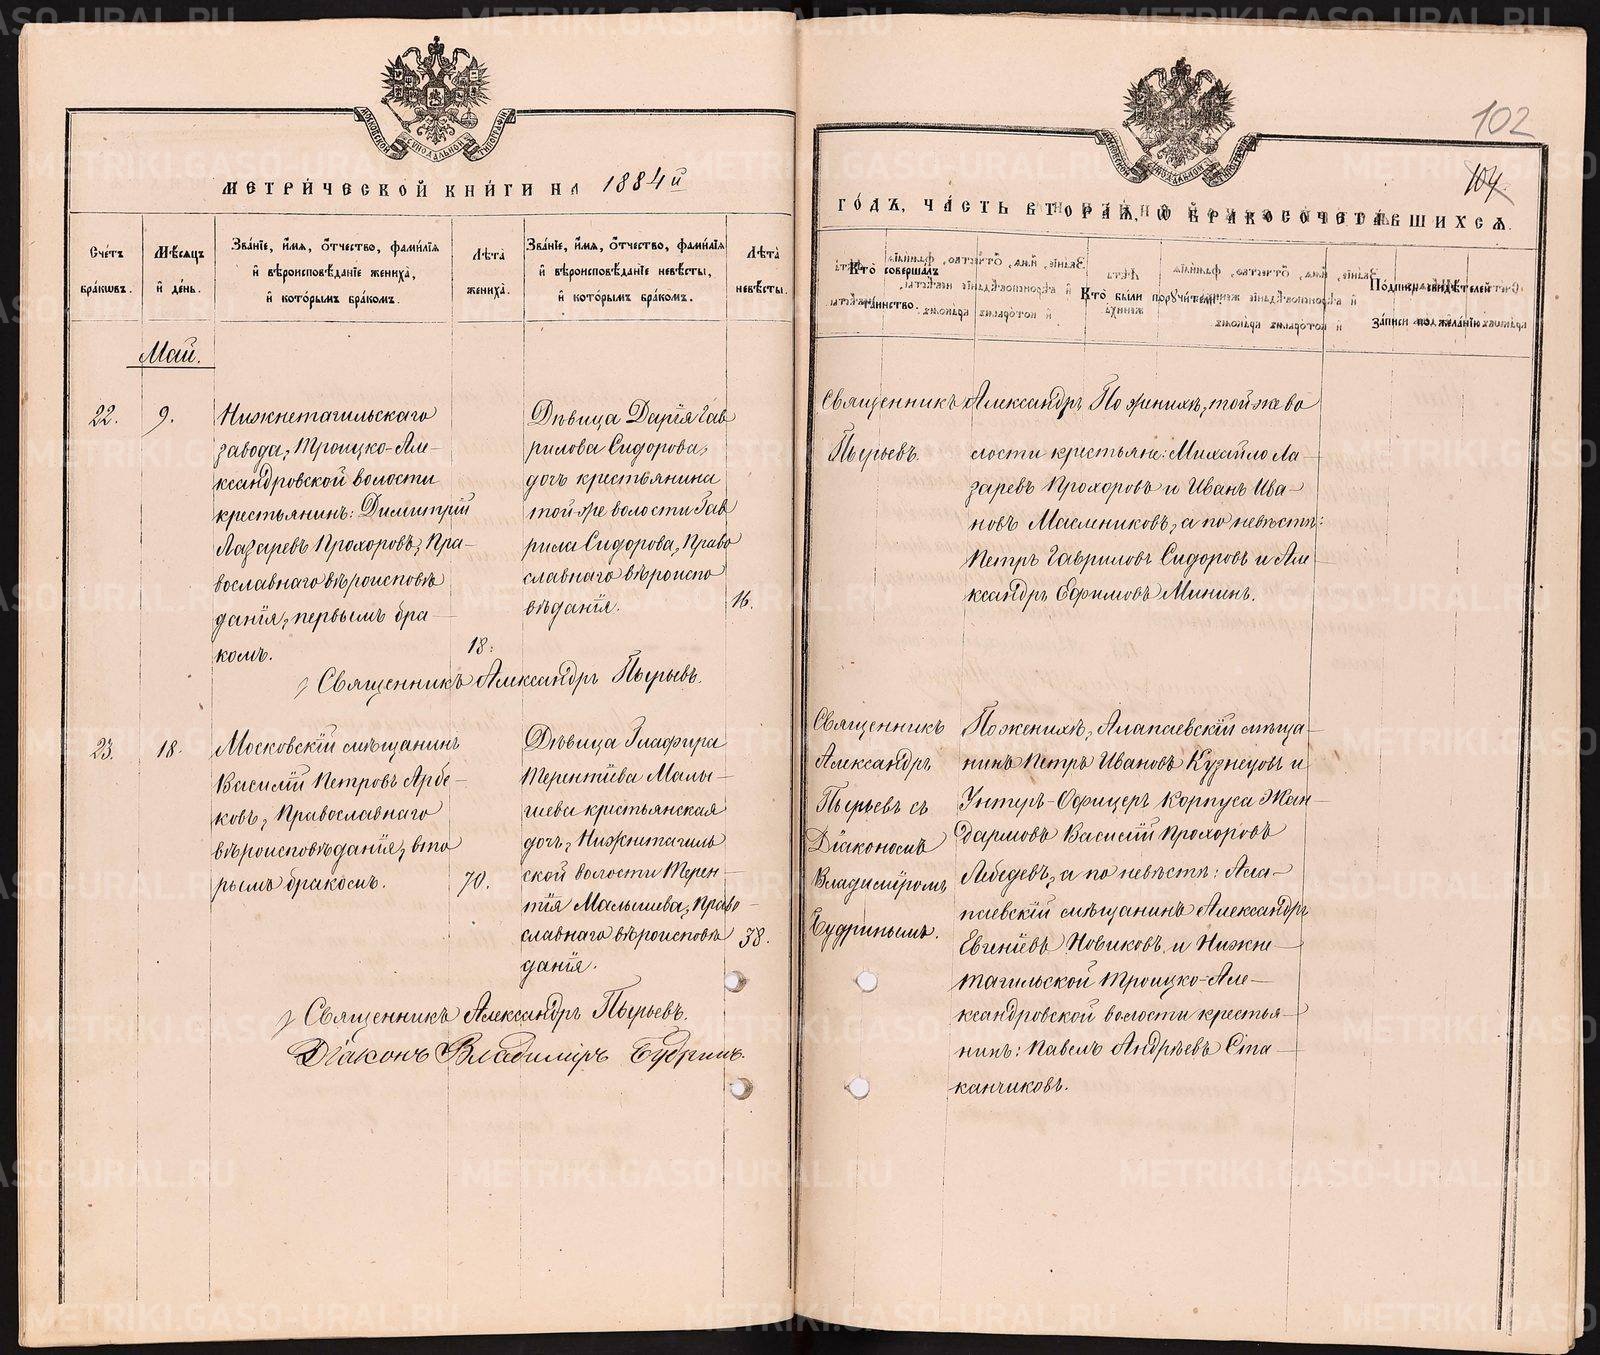 МЕТРИ́ЧЕСКОЙ КНИ́ГИ НА 1884й
Сче́тъ бра́кωвъ.
Мѣ́сяцъ и҆ де́нь.
Зва́нїе, и҆́мя, ѻ҆́тчество, фами́лїя и҆ вѣроисповѣ́данїе жениха̀, и҆ кото́рымъ бра́комъ.
Лѣ́та жениха̀.
Зва́нїе, и҆́мя, ѻ҆́тчество, фами́лїя и҆ вѣроисповѣ́данїе невѣ́сты, и҆ кото́рымъ бра́комъ.
Лѣ́та невѣ́сты.
Май.
22.
9.
Нижнетагильскаго
завода, Троицко-Але-
ксандровской волости
крестьянинъ: Димитрій
Лазаревъ Прохоровъ, Пра-
вославнаго вѣроисповѣ
данїя, первымъ бра-
комъ.
18.
Дѣвица Дарїя Гав
рилова Сидорова,
дочь крестьянина
той-же волости Гав
рила Сидорова, Право
славнаго вѣроиспо
вѣданїя.
16.
Священникъ Александръ Пырьевъ.
23.
18.
Московскїй мѣщанинъ
Василїй Петровъ Арбе-
ковъ, Православнаго
вѣроисповѣданїя, вто
рымъ бракомъ.
70.
Дѣвица Глафира
Терентїева Малы-
шева крестьянская
дочь, Нижнетагиль
ской волости Терен-
тїя Малышева, Право-
славнаго вѣроисповѣ
данїя.
38.
Священникъ Александръ Пырьевъ.
Дїаконъ Владимїръ Будринъ.
102
104.
ГО́ДЪ, ЧА́СТЬ ВТОРА́Я, Ѡ҆ БРАКОСОЧЕТА́ВШИХСЯ.
Кто̀ соверша́лъ та́инство.
Кто̀ бы́ли поручи́тели.
По́дписи свидѣ́телей за́писи по жела́нїю.
Священникъ Александръ
Пырьевъ.
По женихѣ, той же во
лости крестьяне: Михайло Ла-
заревъ Прохоровъ и Иванъ Ива-
новъ Масленниковъ, а по невѣстѣ:
Петръ Гавриловъ Сидоровъ и Але-
ксандръ Ефимовъ Мининъ.
Священникъ
Александръ
Пырьевъ съ
Дїакономъ
Владимїромъ
Будринымъ.
По женихѣ, Алапаевскїй мѣща-
нинъ Петръ Ивановъ Кузнецовъ и
Унтеръ-Офицеръ Корпуса Жан-
дармовъ Василїй Прохоровъ
Лебедевъ, а по невѣстѣ: Ала-
паевскїй мѣщанинъ Александръ
Евгенїевъ Новиковъ и Нижне-
тагильской Троицко-Але-
ксандровской волости крестья-
нинъ: Павелъ Андрѣевъ Ста-
канчиковъ.
METRIKI.GASO-URAL.RU